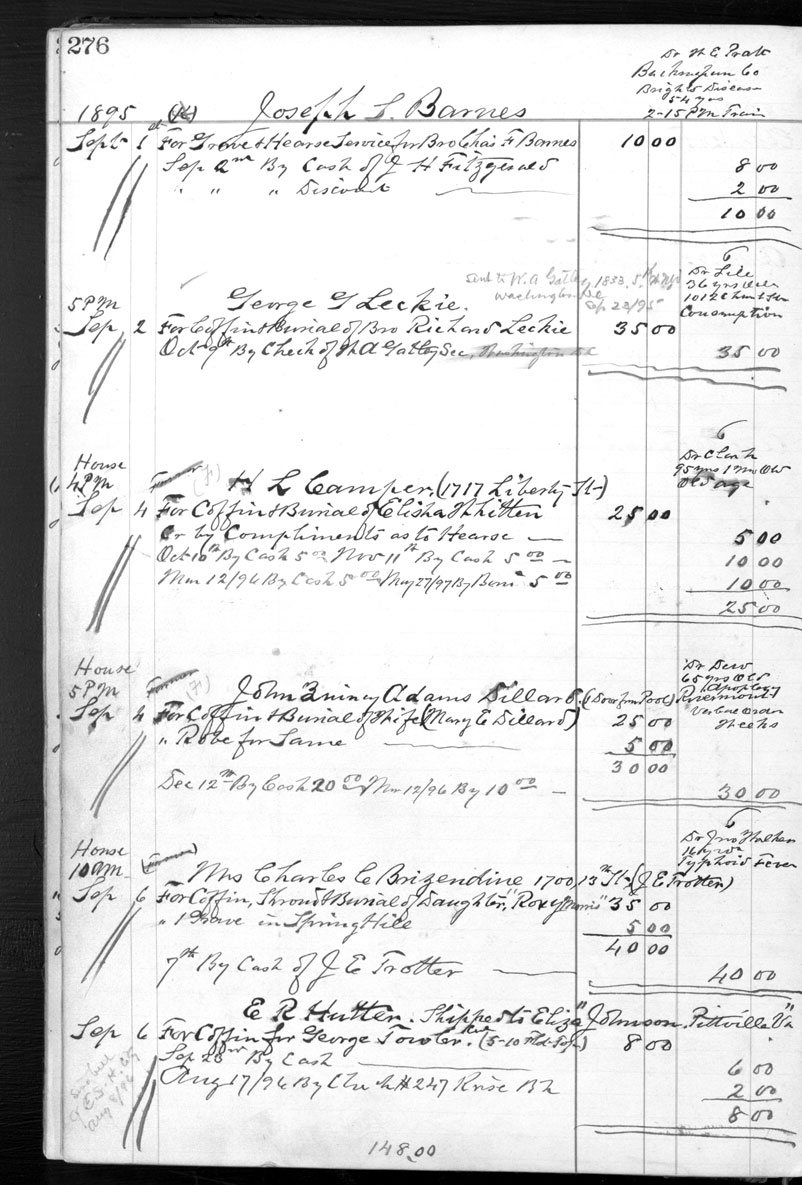 276
Dr H E Pratt
Buckingham Co
Brights Disease
54 yrs
2-15 PM Train
1895 Joseph S. Barnes
Sept 1st For Grave & Hearse Service for Bro Chas F Barnes 10 00
Sep 2nd By Cash of J H Fitzgerald 8 00
" " " Discount 2 00
10 00
Sent to W. A. Gatley, 1833, 5
Washington DC Sep 23/95
Dr Lile
36 yrs old
1012 Church St
Consumption
5 PM George G Leckie.
Sep 2 For Coffin & Burial of Bro Richard Leckie 35 00
Oct 9th By Check of W A Gatley Sec, Washington 35 00
Dr Clark
95 yrs 1 Mo Old
Old age
House
4 PM H L Camper. (1717 Liberty St)
Sep 4 For Coffin & Burial of Elisha Whitten 25 00
Cr by Compliments as to Hearse 5 00
Oct 10th By Cash 5 00 Nov 11th By Cash 5 00 10 00
Mar 12/96 By Cash 5 00 May 27/97 By 5 00 10 00
25 00
Dr Dew
65 yrs Old
Apoplexy
Rivermont
House
5 PM John Quincy Adams Dillard,
Sep 4 For Coffin & Burial of Wife (Mary E Dillard) 25 00
" Robe for Same 5 00
30 00
Dec 12th By Cash 20 00 Mar 12/96 By 10 00 30 00
Dr Jno Walker
16 yrs
Typhoid Fever
House
10 am Mrs Charles C Brizendine 1700, 13th St (J E Trotter)
Sep 6 For Coffin, Shroud & Burial of Daughter, "Roxy Morris" 35 00
" 1 Grave in Spring Hill 5 00
40 00
7th By Cash of J E Trotter 40 00
E R Hutter. Shipped to Eliza Johnson. Pittville Va
Sep 6 For Coffin for George Fowler. 8 00
Sep 28 By Cash 6 00
Aug 17/96 By Check # 247 Krise Bk 2 00
8 00
148.00